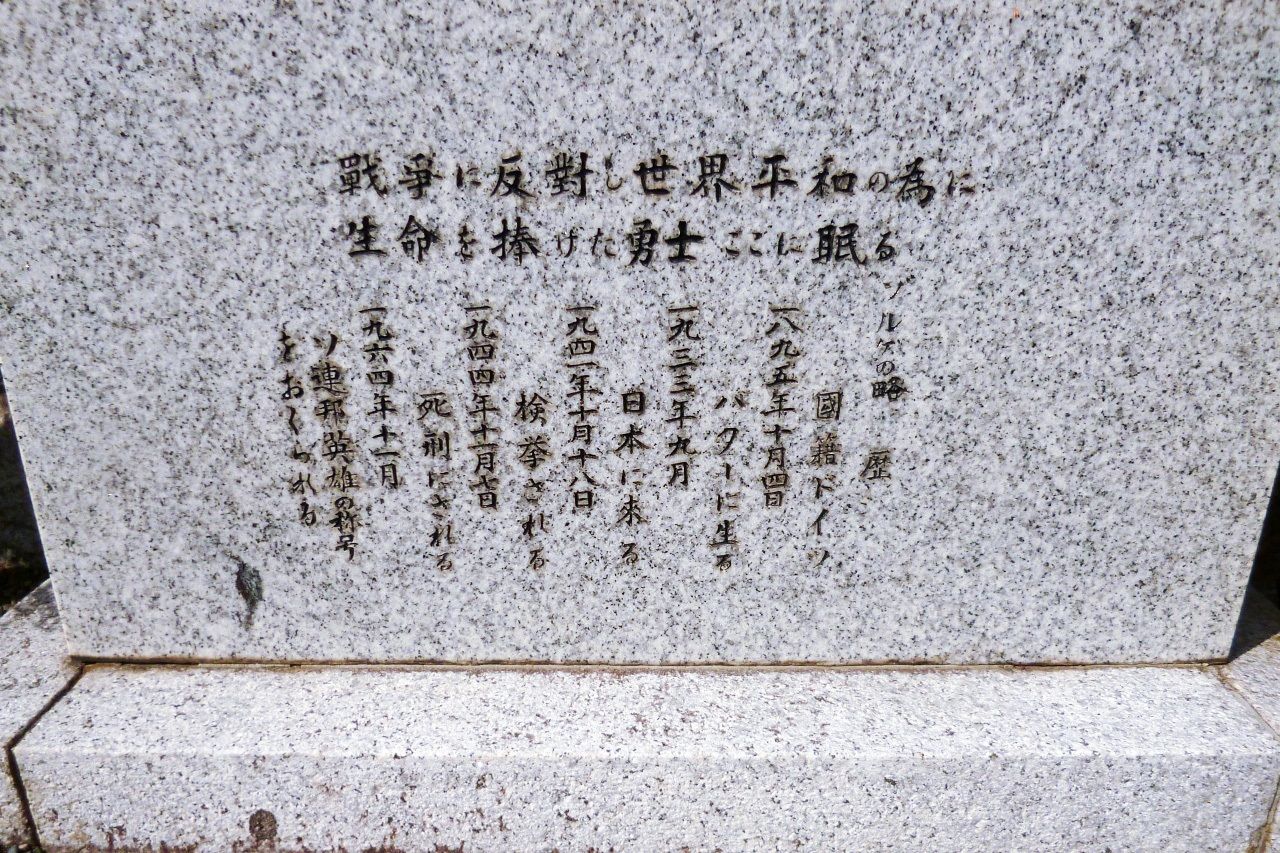 戰爭に反對し世界平和の為に
生命を捧げた勇士ここに眠る
ゾルゲの略歴
國籍ドイツ
一八九五年十月四日
バクーに生る
一九三三年九月
日本に來る
一九四一年十月十八日
検挙される
一九四四年十一月七日
死刑にされる
一九六四年十一月
ソ連邦英雄の称号
をおくられる